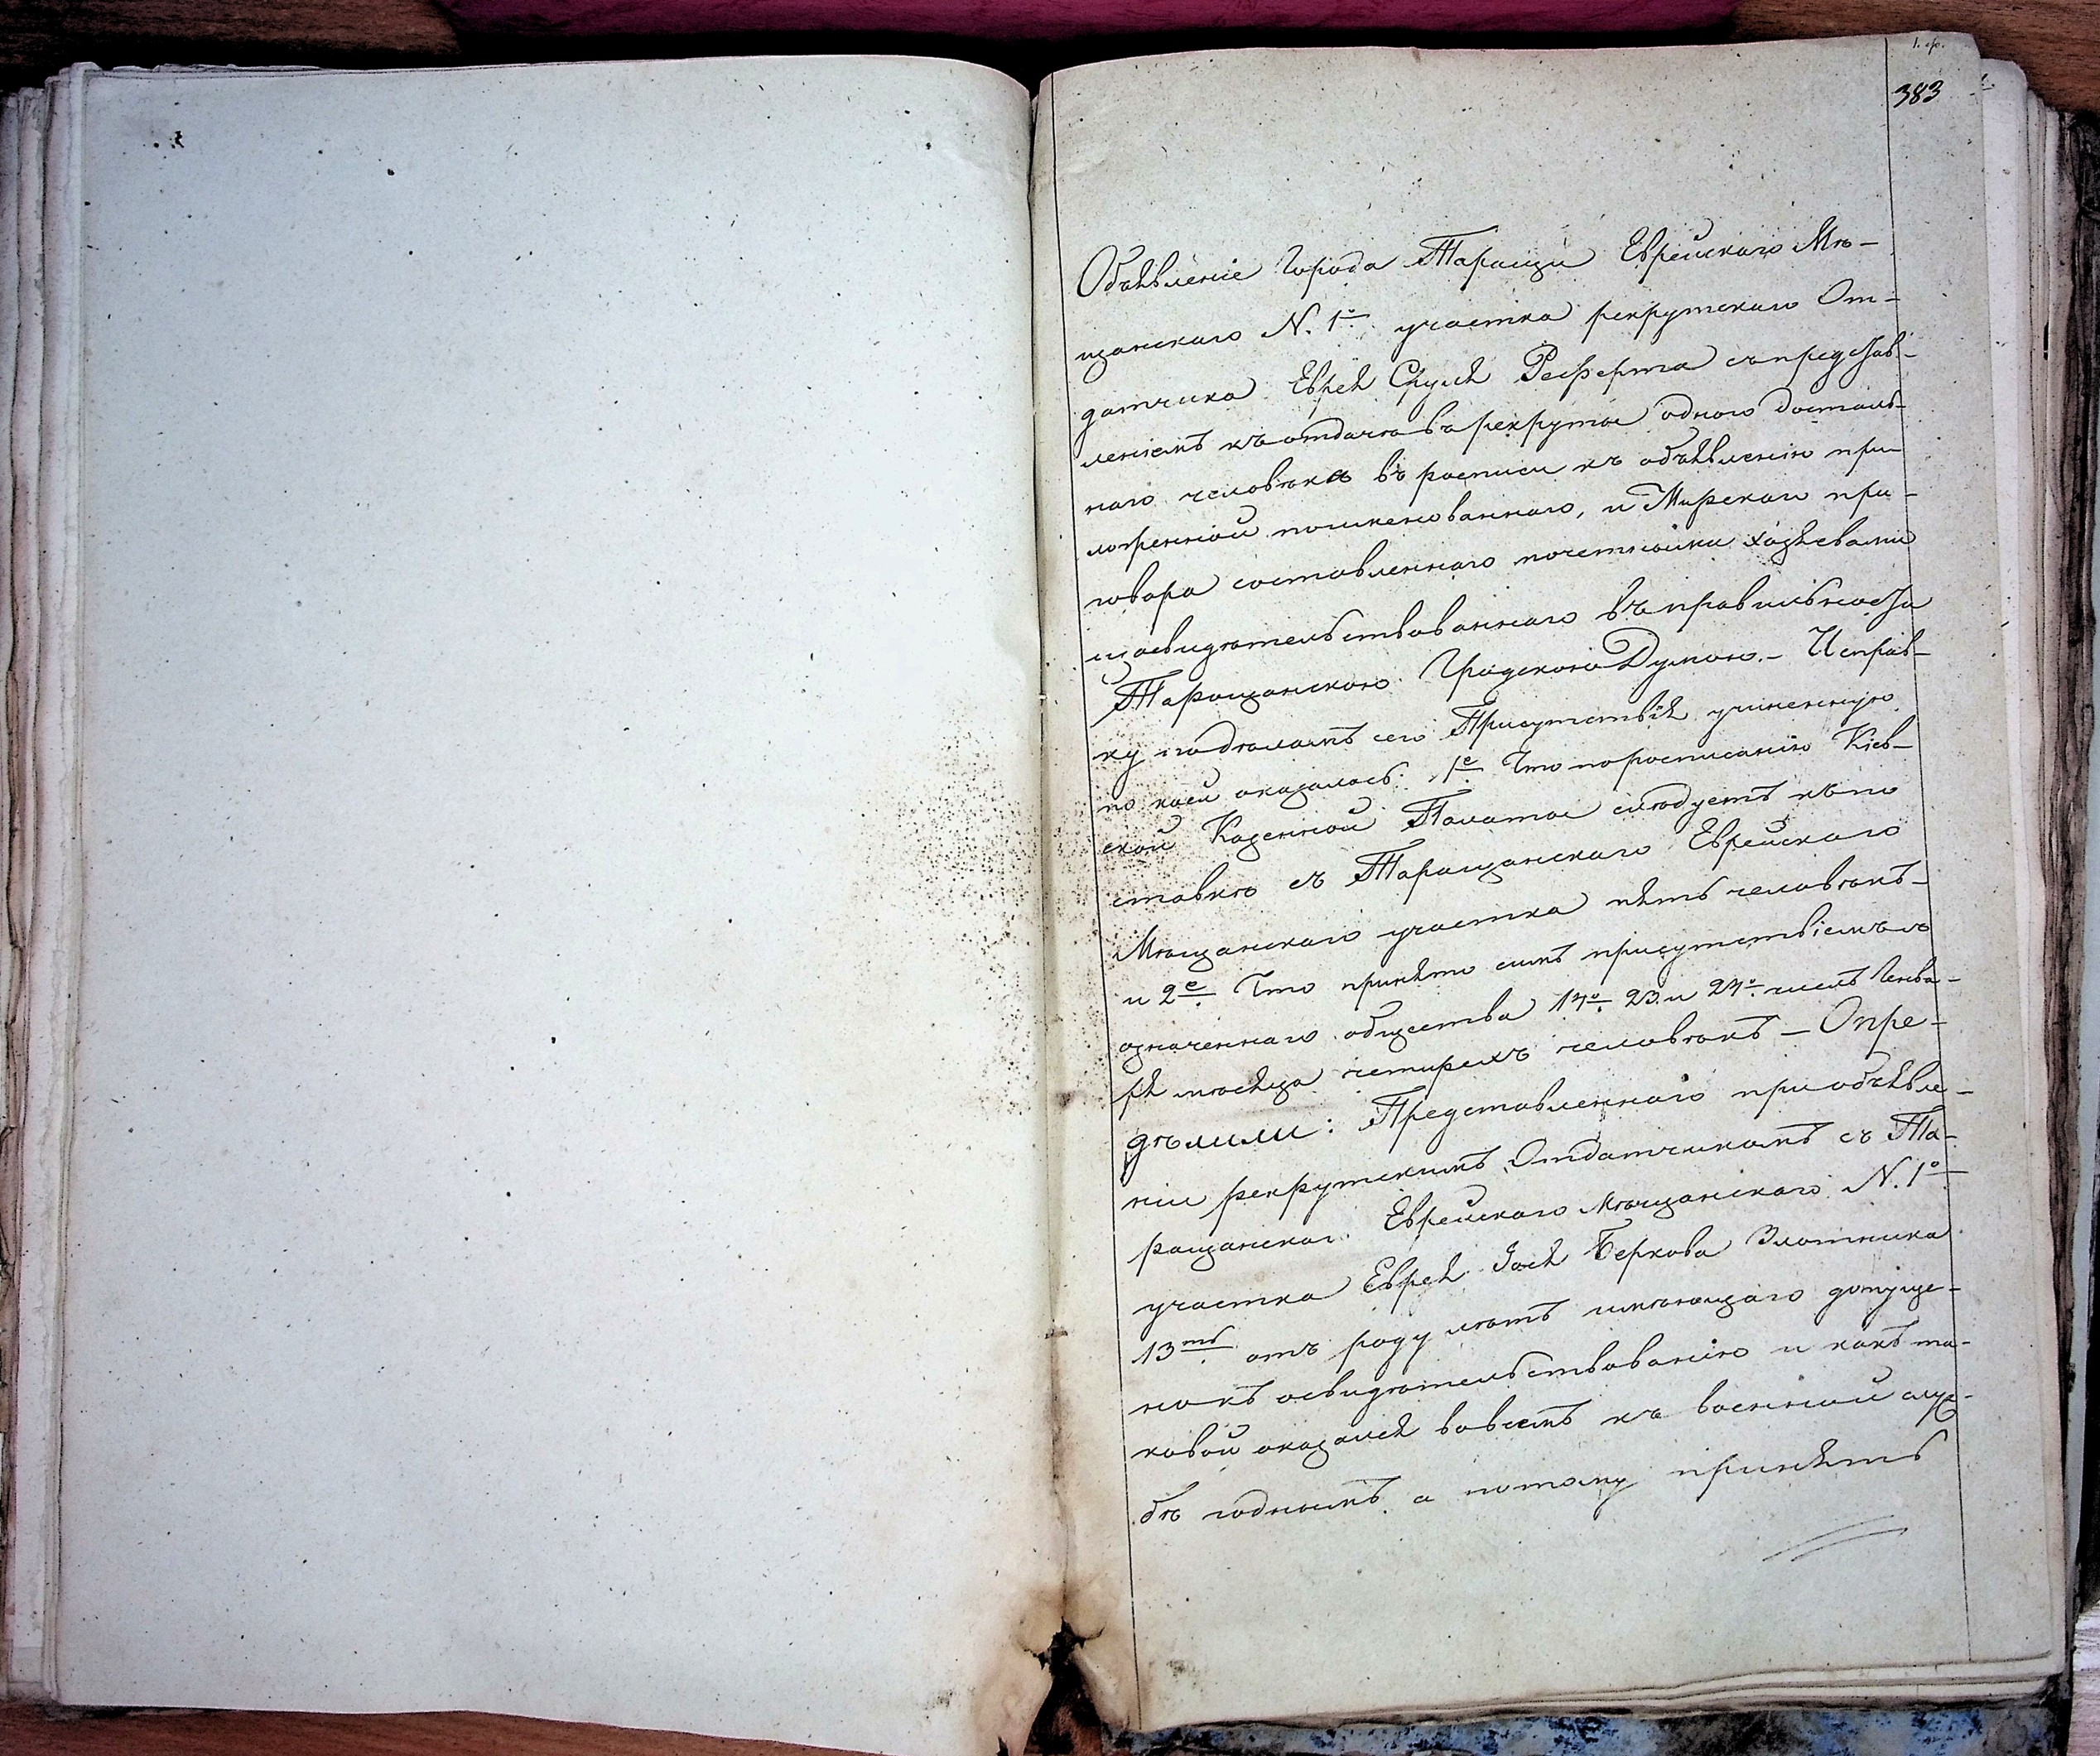 383
Объявленіе Города Таращи Еврейскаго Мѣ-
щанскаго N. 1º участка рекрутскаго От-
датчика Еврея Сруля Реферта съ представ-
леніемъ къ отдачѣ въ рекруты одного досталь-
наго человѣка въ росписи къ объявленію при-
ложенной поименованнаго, и Мирскаго при-
говора составленнаго почетными хозяевами
и освидѣтельствованнаго въ правильности
Таращанскою Градскою Думою. – Исправ-
ку подѣламъ сего Присутствія учиненную
по коей оказалось: 1е Что по росписанію Кіев-
ской Казенной Палаты слѣдуетъ къ по
ставкѣ съ Таращанскаго Еврейскаго
Мѣщанскаго участка пять человѣкъ –
и 2е Что принято симъ присутствіемъ съ
означеннаго общества 14º 23. и 24º числъ Генва-
ря мѣсяца четырехъ человѣкъ – Опре-
дѣлили: Представленнаго при объявле-
ніи рекрутскимъ Отдатчикомъ съ Та-
ращанскаг. Еврейскаго Мѣщанскаго N. 1º
участка Еврея Іося Беркова Злотника
13ть отъ роду лѣтъ имѣющаго допуще-
нокъ освидѣтельствованію и какъ та-
ковой оказался вовсемъ къ военной служ-
бѣ годнымъ а потому принять